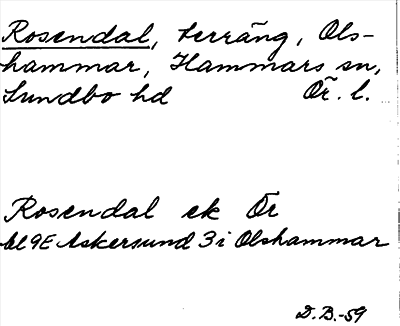 Rosendal, terräng, Ols-
hammar, Hammars sn,
Sundbo hd Ör. l.
Rosendal ek Ör
bl 9E Askersund 3 i Olshammar
D.B.-59